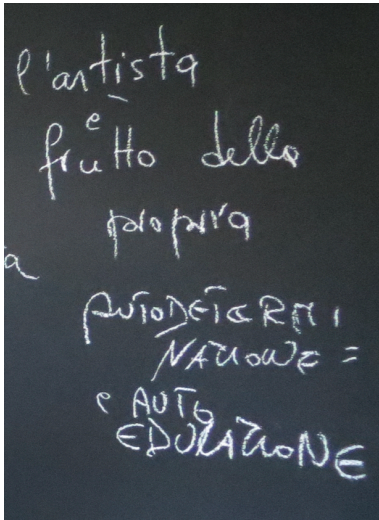 l'artista
è
frutto della
propria
a
AUTODETERMI
NAZIONE =
e AUTO
EDUCAZIONE